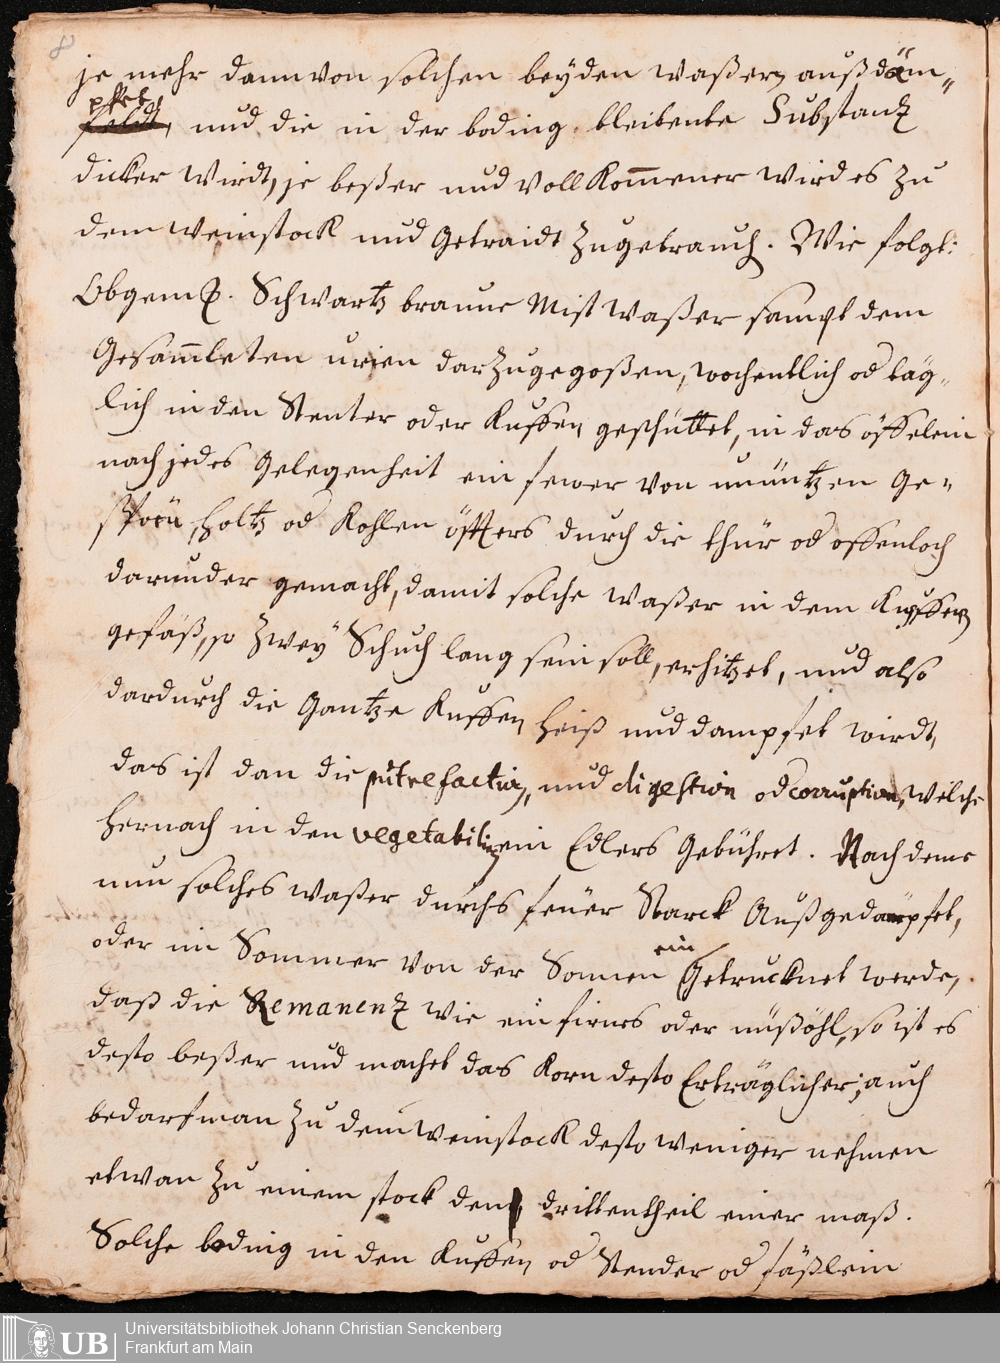 8
je mehr dann von solchen beyden waßern außdäm„
pfet,
feldt, und die in der boding bleibente Substantz
dicker wirdt, je beßer und vollkom̅ener wird es zu
dem weinstock und getraidt zugebrauch. Wie folgt:
Obgem. Schwartz braune Mist waßer sampt dem
gesam̅leten urien darzugegoßen, wochentlich od täg„
lich in den Stenter oder Kuffen geschüttet, in das öffelein
nach jedes gelegenheit ein fewer von unnützen ge„
holtz od Kohlen öffters durch die thür od offenloch
darunder gemacht, damit solche waßer in dem Kupffern
gefäß, so zwey Schuch lang sein soll, erhitzet, und also
dardurch die gantze Kuffen heiß und dampfet wirdt,
das ist dan die putrefaction, und digestion od corruption, welche
hernach in den vegetabilien ein Edlers gebühret. Nach deme
nun solches waßer durchs feüer Starck Außgedämpfet,
oder im Sommer von der Sonnen
ein
getrucknet werde,
daß die Remanentz wie ein firnes oder nüßöhl, so ist es
desto beßer und machet das Korn desto Erträglicher; auch
bedarf man zu dem weinstock desto weniger nehmen
etwan zu einem stock den drittentheil einer maß.
Solche boding in den Kuffen od Stender od fäßlein
UB
Universitätsbibliothek Johann Christian Senckenberg
Frankfurt am Main